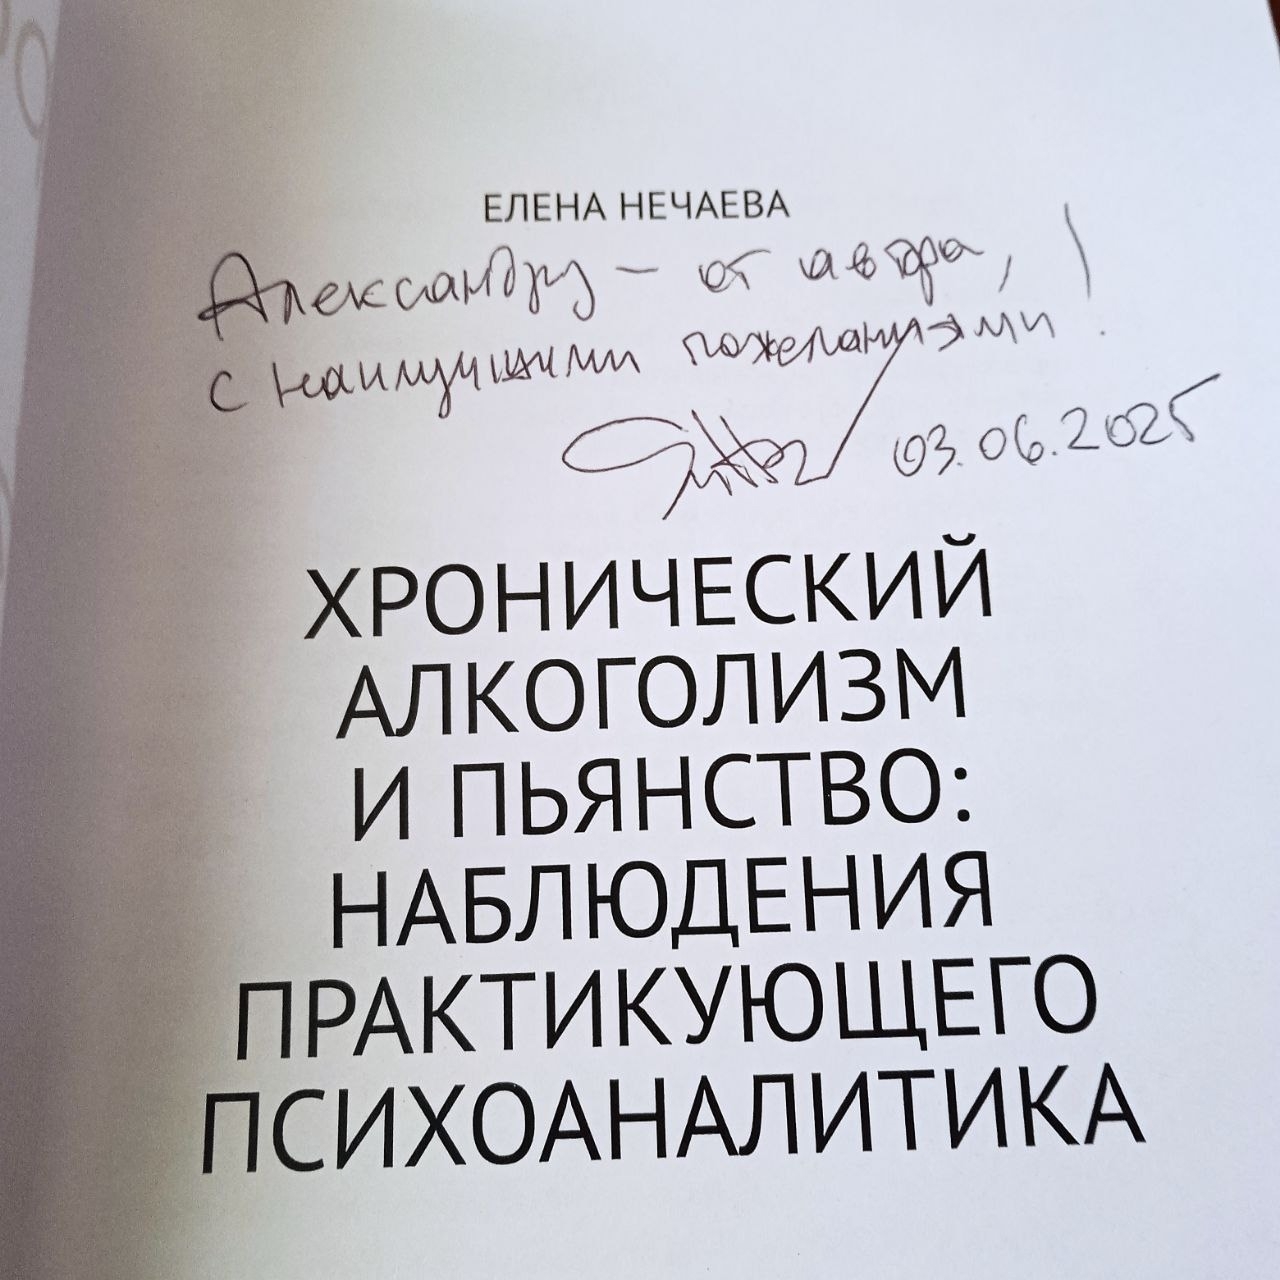 ЕЛЕНА НЕЧАЕВА
Александру – от автора,
с наилучшими пожеланиями!
03.06.2025
ХРОНИЧЕСКИЙ
АЛКОГОЛИЗМ
И ПЬЯНСТВО:
НАБЛЮДЕНИЯ
ПРАКТИКУЮЩЕГО
ПСИХОАНАЛИТИКА